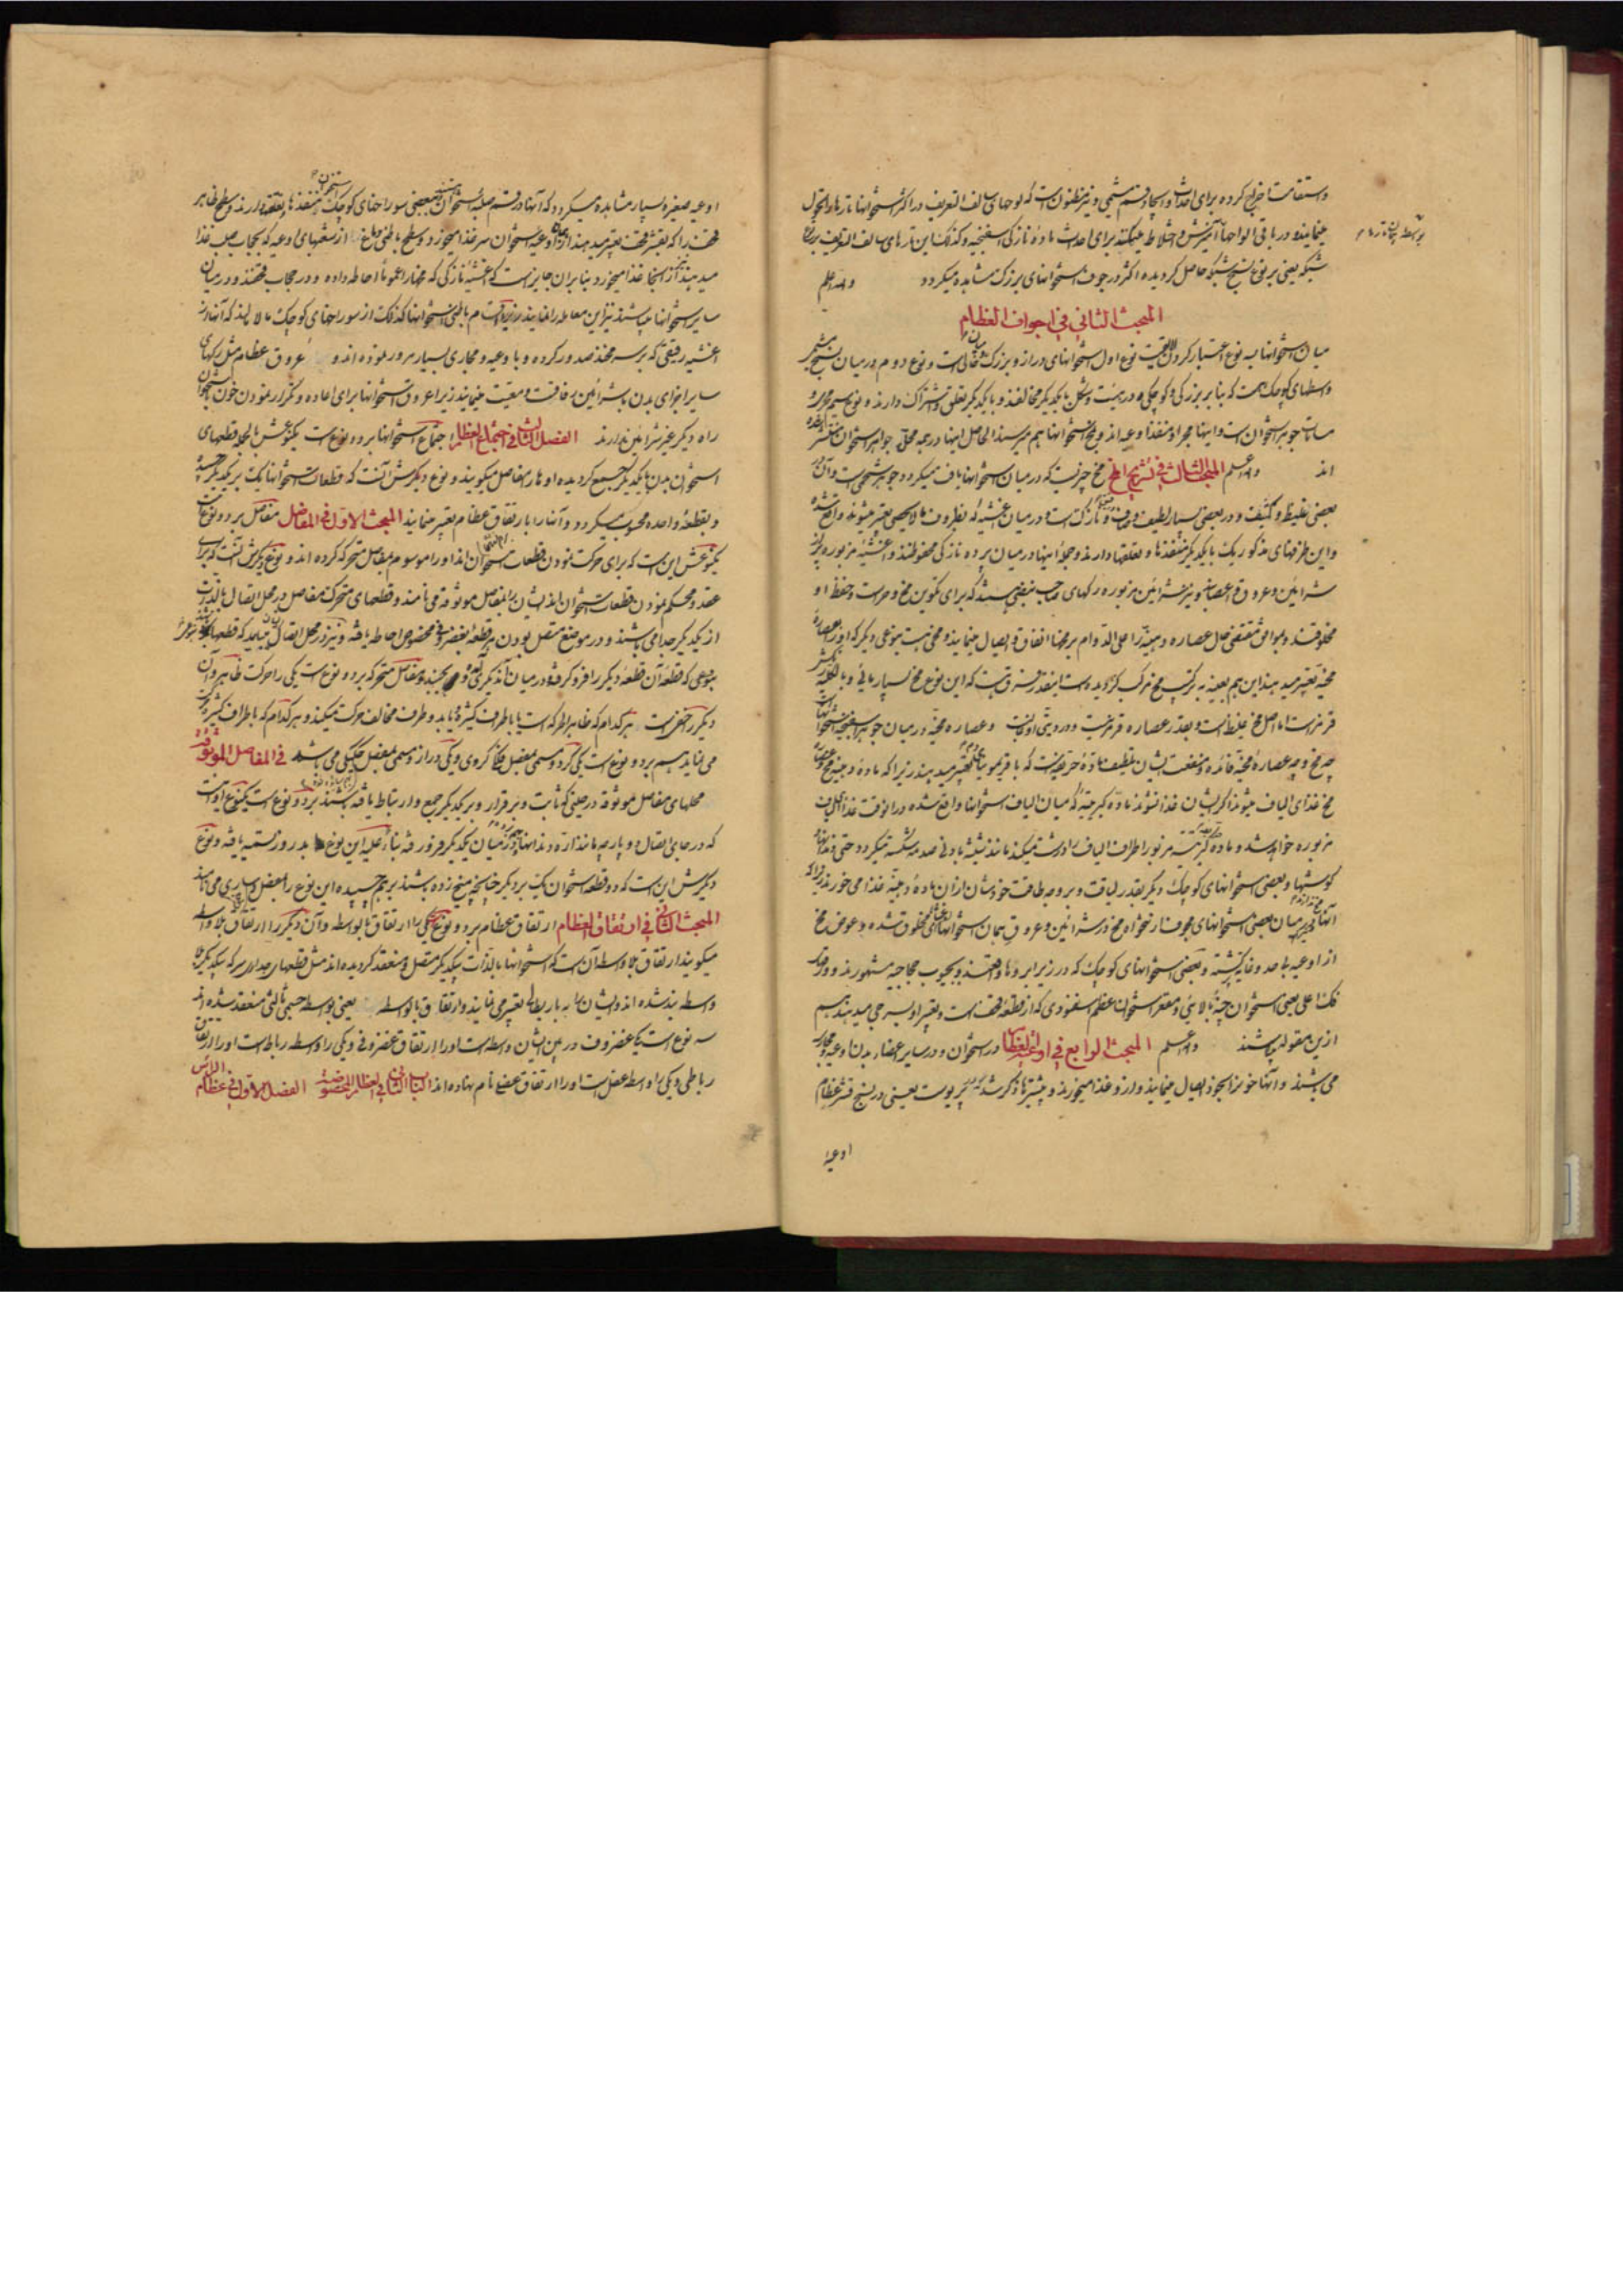 و استقامت اخراج کرده برای احداث و ایجاد قسم مشیمی و نیز مظنون است که لوحهای سالف التعریف در اکثر استخوانها تارها و اتحول
مینمایند و در باقی الواحها آمیزش و اختلاط میکنند برای احداث مادهٔ نازکی اسفنجیه و کذلک این تارهای سالف التعریف
شبکه یعنی بر نوع نسیج شبکه حاصل کردیده اکثر در جوف استخوانهای بزرک مشاهده میکردد والله اعلم
المبحث الثانی فی اجواف العظام
میان استخوانها سه نوع اعتبار کردن نوع اول استخوانهای دراز و بزرک خالی است و نوع دوم در میان نسیج
و اسطهای کوچک هست که بنا بر بزرکی و کوچکی و در هیئت و شکل با یکدیکر مخالفند و با یکدیکر تعلق و اشتراک دارند و نوع سیم
مسامات جوهر استخوان است و اینها مجرا و منفذ اوعیه اند و مخ استخوانها هم میرسند الحاصل اینها در جمه محل جواهر استخوان منتشر
اند والله اعلم المبحث الثالث فی تشریح المخ مخ چیزیست که در میان استخوانها یافت میکردد جوهر شحمی است و آن در
بعضی غلیظ و کثیف و در بعضی بسیار لطیف و نازک است و در میان اغشیه که بظروف مالا یحصی تعبیر میشوند واقع شده
و این ظرفهای مذکور یک با یکدیکر منفذها و تعلقها دارند و جملهٔ اینها در میان پرده نازکی محفوظند و اغشیهٔ مزبوره پر از
شرائین و عروق و اعصاب و نیز شرائین مزبوره رکهای صاحب نبض هستند که برای تکوین مخ و حرست و حفظ او
مخلوقند و موافق مقتضی حال عصاره دهنیّه را علی الدوام بر مخها انفاق و ایصال مینمایند و مخی هست بنوعی دیکر که او را بعصارهٔ
مخیّه تعبیر میدهند این هم بعینه به ترکیب مخ مرکب کردیده است اینقدر فرق هست که این نوع مخ بسیار مائی و بالکلیه
قرمز است اما اصل مخ غلیظ است و بقدر عصاره قرمز نیست و در دویتی اولیست و عصاره مخیّه در میان جوهر اسفنجیه استخوانهاست
چه مخ و چه عصارهٔ مخیّه فائده و منفعت ایشان تلطیف مادهٔ حریفه است که با قریمونیا تعبیر میدهند زیرا که مادهٔ دهنیه مخ و عصارهٔ
مخ غذای الیاف میشوند اکر ایشان غذا نشوند مادهٔ کبریتیه که میان الیاف استخوانها واقع شده در انوقت غذای الیاف
مزبوره خواهد شد و مادهٔ کبریتیه مزبور اطراف الیاف را درشت میکند مانند شیشه بادنی صدمه شکسته میکردد حتی دندانها و
کوشها و بعضی استخوانهای کوچک دیکر بقدر لیاقت و بر وجه طاقت خودشان ازان مادهٔ دهنیّه غذا می خورند زیرا که
آنها در میان بعضی استخوانهای مجوف از نخواه مخ در شرائین و عروق همان استخوانها مخلوق شده و عوض مخ
از اوعیه بناحد و غایه کشته و بعضی استخوانهای کوچک که در زیر ابروها واقعند و بجیوب حجاجیه مشهورند و در جوف
فک اعلی یعنی استخوان چنهٔ بالائی و مقعر استخوان عظم اسفنودی که از قطعهٔ قحف است و تعبیر او بسرجی میدهند هم
ازین مقوله میباشند والله اعلم المبحث الرابع فی اوعیة العظام در استخوان و در سایر اعضاء بدن اوعیه و مجاری
می باشند و آنها خون را بجوف ایصال مینمایند و ازو غذا میخورند و پیشترها ذکر شد پوست یعنی در نسج قشر عظام
اوعیهٔ
اوعیه صغیره بسیار مشاهده میکردد که آنها در قسم صلبهٔ استخوان بعضی سوراخهای کوچک منفذها و تعلقها دارند و سطح ظاهر
قحف را که بقشر قحف تعبیر میدهند از اوعیه استخوان سر غذا میخورد و سطح باطنی دماغ از شعبهای اوعیه که بحجاب صلب غذا
میدهند از آنجا غذا میخورد بنا بران جایز است که اغشیهٔ نازکی که مخها را عموماً احاطه داده و در حجاب قحفند و در میان
سایر استخوانها میباشند نیز این معامله را نمایند در نزد اقسام باطنی استخوانها کذلک از سوراخهای کوچک مالا یعد که آنها در
اغشیه رقیقی که بر سر مخند صدور کرده و با وعیه و مجاری بسیار مرور نموده اند و عروق عظام مثل رکهای
سایر اجزای بدن با شرائین رفاقت و معیت مینمایند زیرا عروق استخوانها برای اعاده و تکرار نمودن خون باستخوان
راه دیکر غیر شرائین ندارند الفصل الثانی فی اجتماع العظام اجتماع استخوانها بر دو نوع است یکنوعش بالجمله قطعهای
استخوان بدن با یکدیکر جمیع کردیده او تار را مفاصل میکویند و نوع دیکرش آنست که قطعات استخوانها یک بر یکدیکر چسبیده
و بقطعهٔ واحده محسوب میکردد و آنها را بارتفاق عظام تعبیر مینمایند المبحث الاوّل فی المفاصل مفاصل بر دو نوع است
یکنوعش این است که برای حرکت نمودن قطعات استخوان اند او را موسوم بمفاصل متحرکه کرده اند و نوع دیکرش آنست که برای
عقد و محکم نمودن قطعات استخوان اند ایشان را بمفاصل موثوقه می نامند و قطعهای متحرک مفاصل در محل اتصال بالذات
از یکدیکر جدا می باشند و در موضع متصل بودن هر قطعهٔ بغضروف مخصوص احاطه یافته و نیز در محل اتصال میباید که قطعها
بنوعی که قطعهٔ آن قطعهٔ دیکر را فرو کرفته در میان آن دیکری بجنبند و مفاصل متحرکه بر دو نوع است یکی را حرکت ظاهر و آن
دیکر را خفی است هرکدام که ظاهر الحرکه است یا باطراف کثیره یاید و طرف مخالف حرکت میکنند و هرکدام که باطراف کثیره حرکت
می نماید هم بر دو نوع است یکی کرد و مسمی بمفصل کروی و یکی دراز و مسمی بمفصل چنکی می باشد فی المفاصل الموثوقه
محلهای مفاصل موثوقه در جائی که ثابت و برقرار و بر یکدیکر جمع و ارتباط یافته باشند بر دو نوع است یکنوع آنست
که در جای اتصال دو پارچه مانند اره دندانها در میان یکدیکر فرو رفته بناءً علیه این نوع بدروز تسمیه یافته و نوع
دیکرش این است که دو قطعه استخوان یک بر دیکر چنانچه میخ زده باشند بر هم چسپیده این نوع را مفصل مساری می نامند
المبحث الثانی فی ارتفاق العظام ارتفاق عظام بر دو نوع یکی را ارتفاق بالواسطه و آن دیکر را ارتفاق بلا واسطه
میکویند ارتفاق بلا واسطه آن است که استخوانها بالذات بیکدیکر متصل و منعقد کردیده اند مثل قطعهای جدار سر که بیکدیکر بلا
واسطه بند شده اند و ایشان را به با ربطا تعبیر می نمایند و ارتفاق بالواسطه یعنی بواسطه جسمی ثالثی منعقد شده اند
سه نوع است یکی غضروف در بین ایشان واسطه است او را ارتفاق غضروفی و یکی را واسطه رباط است او را ارتفاق
رباطی و یکی را واسطه عضل است او را ارتفاق عضلی نام نهاده اند الباب الثانی فی العظام المخصوصة الفصل الاوّل فی عظام الرأس